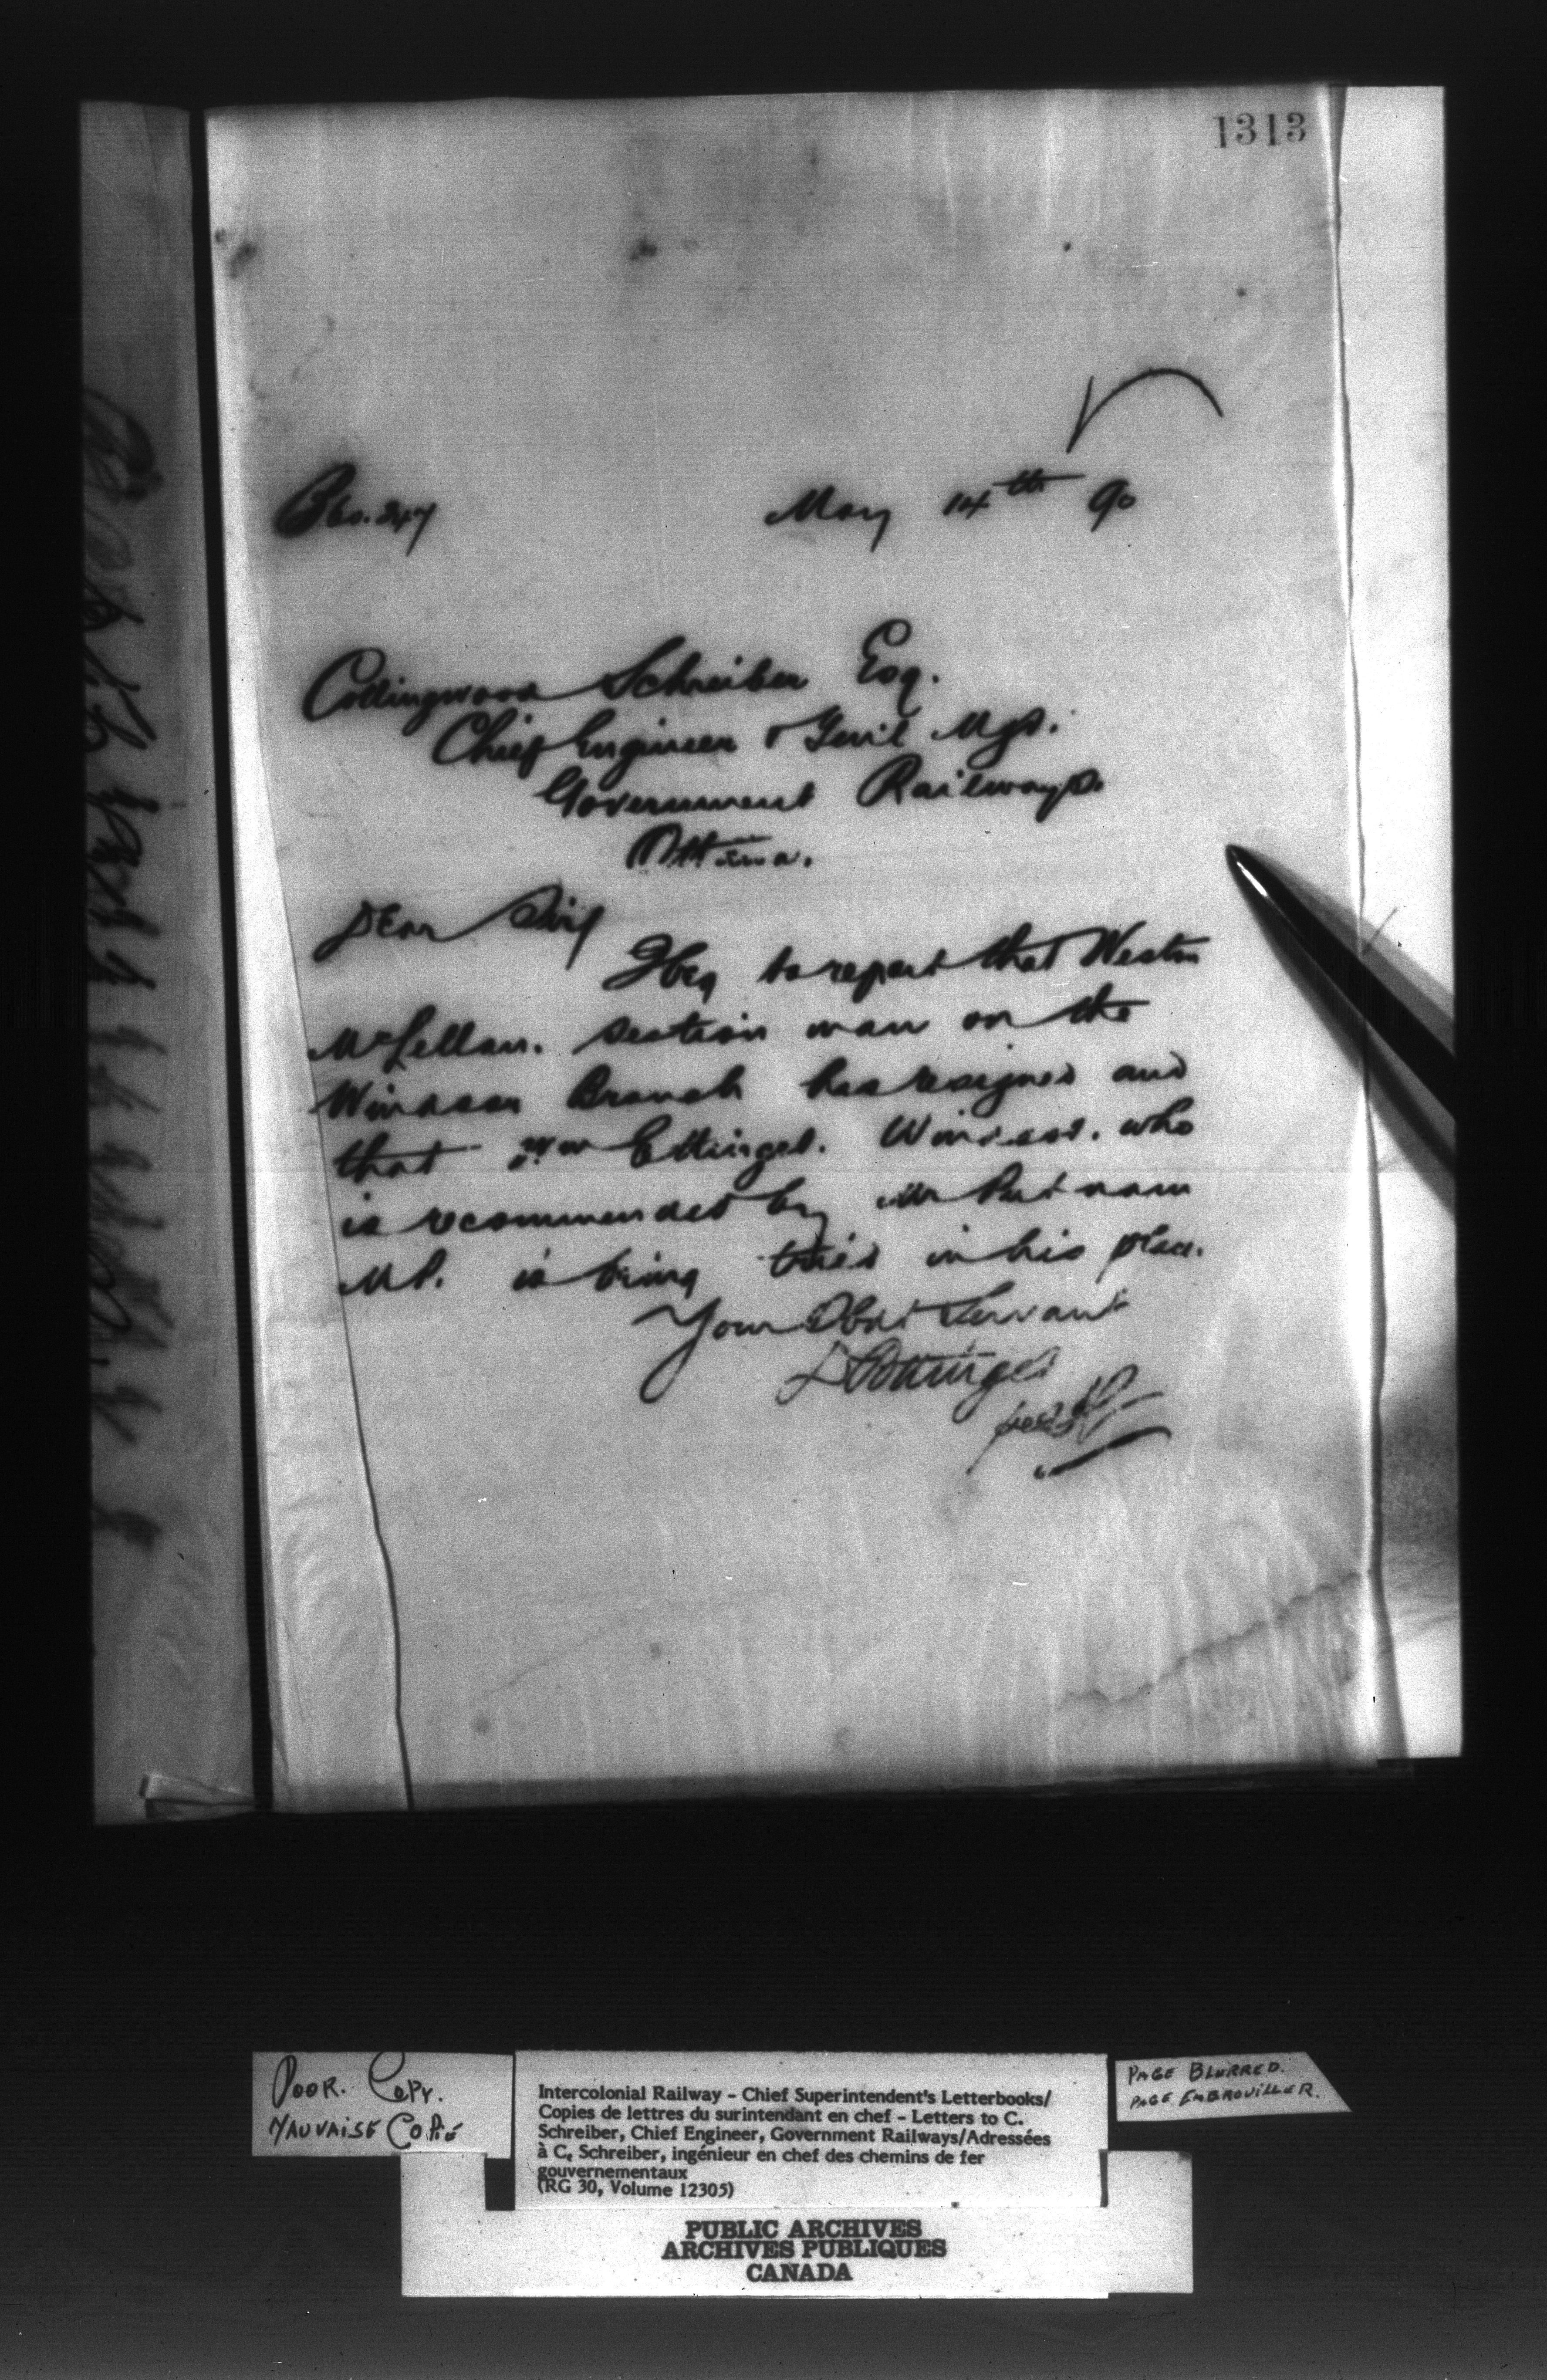 1313
B60.247
May 14th 90
Collingwood Schreiber Esq.
Chief Engineer & Genl Mgr.
Government Railways.
Ottawa.
Dear Sir,
I beg to report that Weston
McLellan. section man on the
Windsor Branch has resigned and
that Wm Ettinger. Windsor. who
is recommended by Mr Putnam
MP. is being tried in his place.
Your Obdt Servant
D Pottinger
POOR. COPY.
MAUVAISE COPIE
Intercolonial Railway - Chief Superintendent's Letterbooks/
Copies de lettres du surintendant en chef - Letters to C.
Schreiber, Chief Engineer, Government Railways/Adressées
à C. Schreiber, ingénieur en chef des chemins de fer
gouvernementaux
(RG 30, Volume 12305)
PAGE BLURRED.
PAGE EMBROUILLER.
PUBLIC ARCHIVES
ARCHIVES PUBLIQUES
CANADA